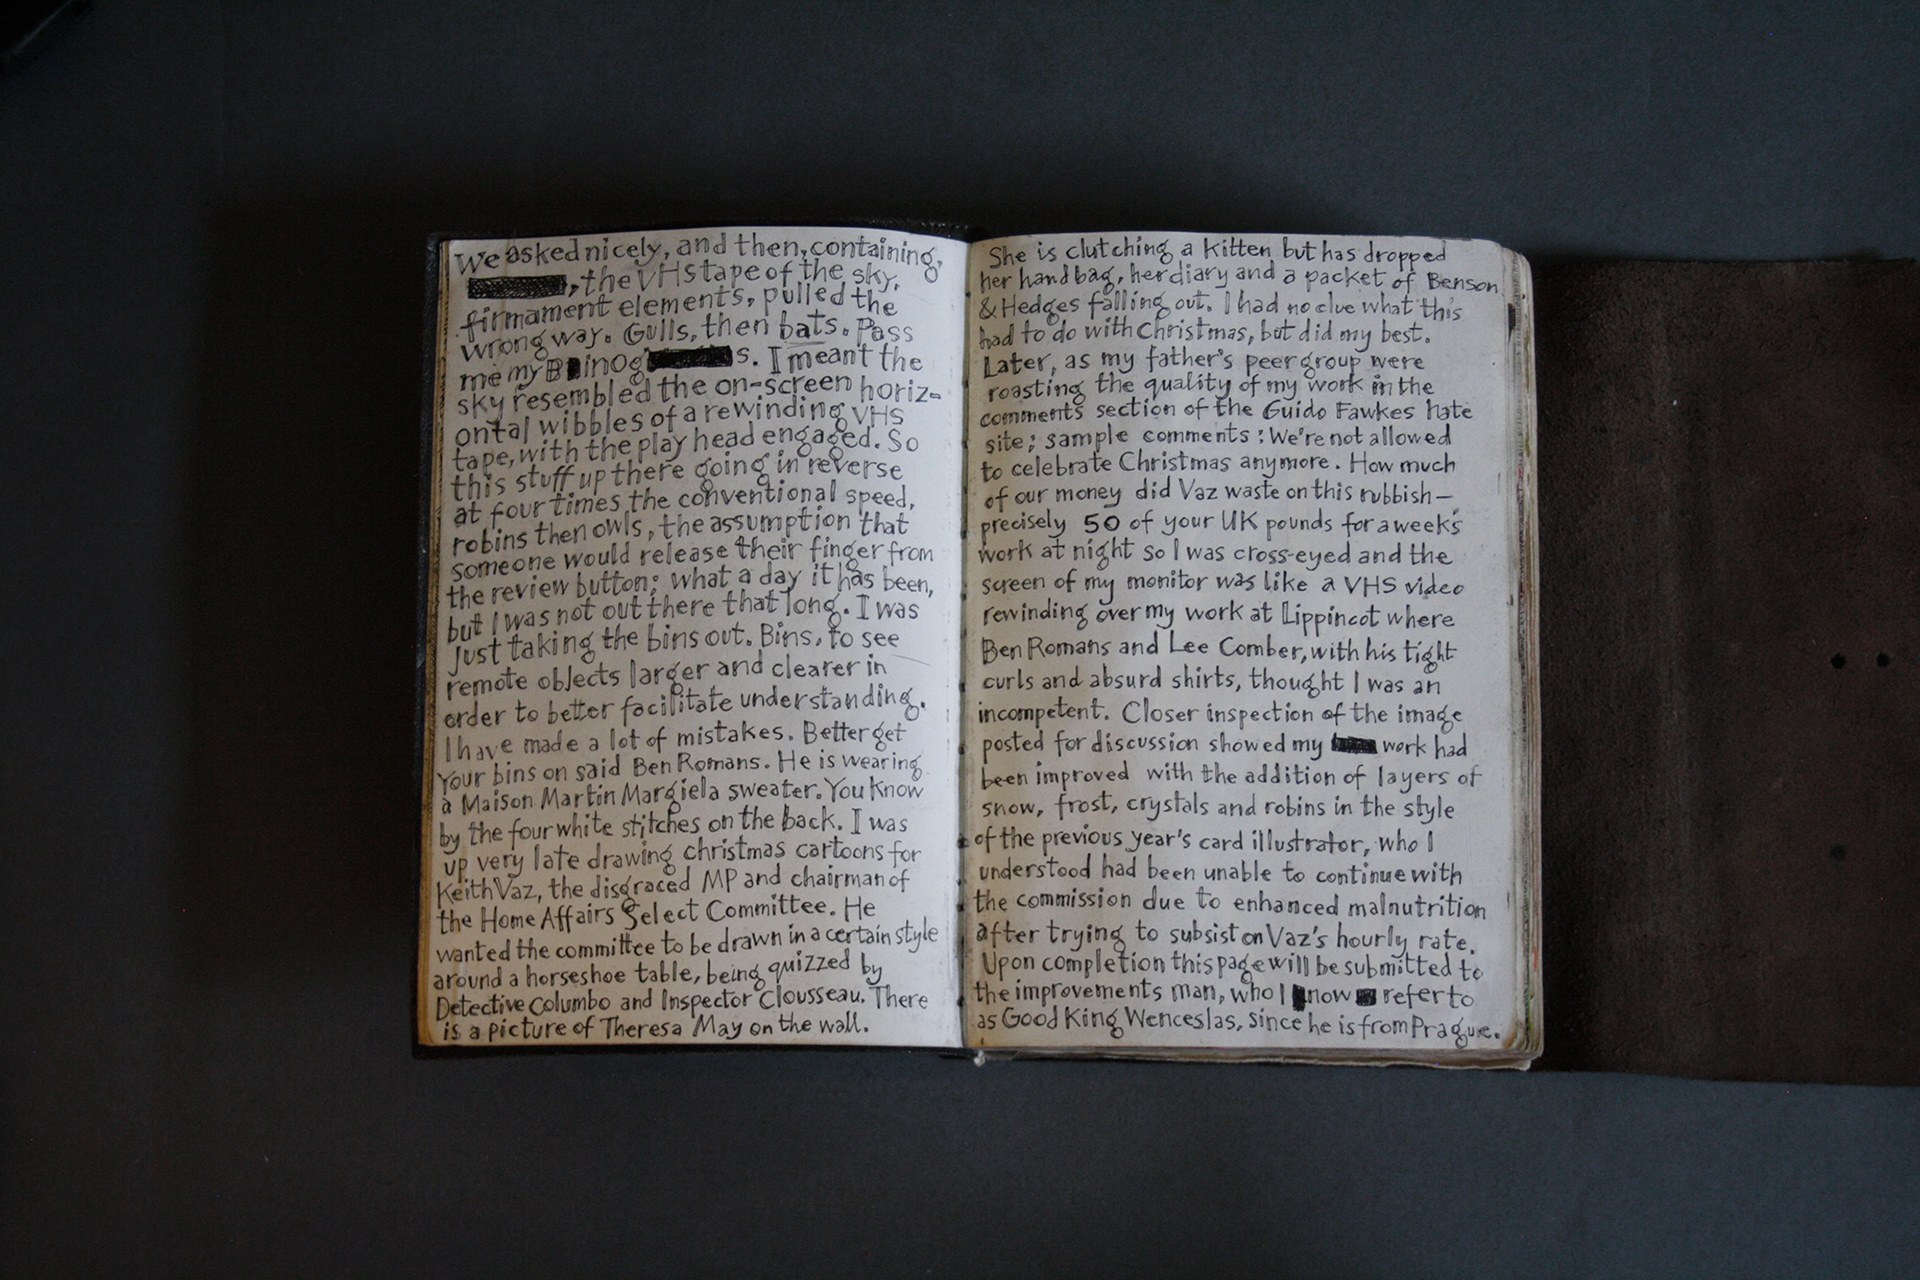 We asked nicely, and then, containing,
, the VHS tape of the sky,
firmament elements, pulled the
wrong way. Gulls, then bats. Pass
me my B inog s. I meant the
sky resembled the on-screen horiz-
ontal wibbles of a rewinding VHS
tape, with the play head engaged. So
this stuff up there going in reverse
at four times the conventional speed,
robins then owls, the assumption that
someone would release their finger from
the review button; what a day it has been,
but I was not out there that long. I was
just taking the bins out. Bins, to see
remote objects larger and clearer in
order to better facilitate understanding.
I have made a lot of mistakes. Better get
your bins on said Ben Romans. He is wearing
a Maison Martin Margiela sweater. You know
by the four white stitches on the back. I was
up very late drawing christmas cartoons for
Keith Vaz, the disgraced MP and chairman of
the Home Affairs Select Committee. He
wanted the committee to be drawn in a certain style
around a horseshoe table, being quizzed by
Detective Columbo and Inspector Clousseau. There
is a picture of Theresa May on the wall.
She is clutching a kitten but has dropped
her handbag, her diary and a packet of Benson
& Hedges falling out. I had no clue what this
had to do with Christmas, but did my best.
Later, as my father's peer group were
roasting the quality of my work in the
comments section of the Guido Fawkes hate
site; sample comments: We're not allowed
to celebrate Christmas anymore. How much
of our money did Vaz waste on this rubbish—
precisely 50 of your UK pounds for a week's
work at night so I was cross-eyed and the
screen of my monitor was like a VHS video
rewinding over my work at Lippincot where
Ben Romans and Lee Comber, with his tight
curls and absurd shirts, thought I was an
incompetent. Closer inspection of the image
posted for discussion showed my work had
been improved with the addition of layers of
snow, frost, crystals and robins in the style
of the previous year's card illustrator, who I
understood had been unable to continue with
the commission due to enhanced malnutrition
after trying to subsist on Vaz's hourly rate.
Upon completion this page will be submitted to
the improvements man, who I now refer to
as Good King Wenceslas, since he is from Prague.